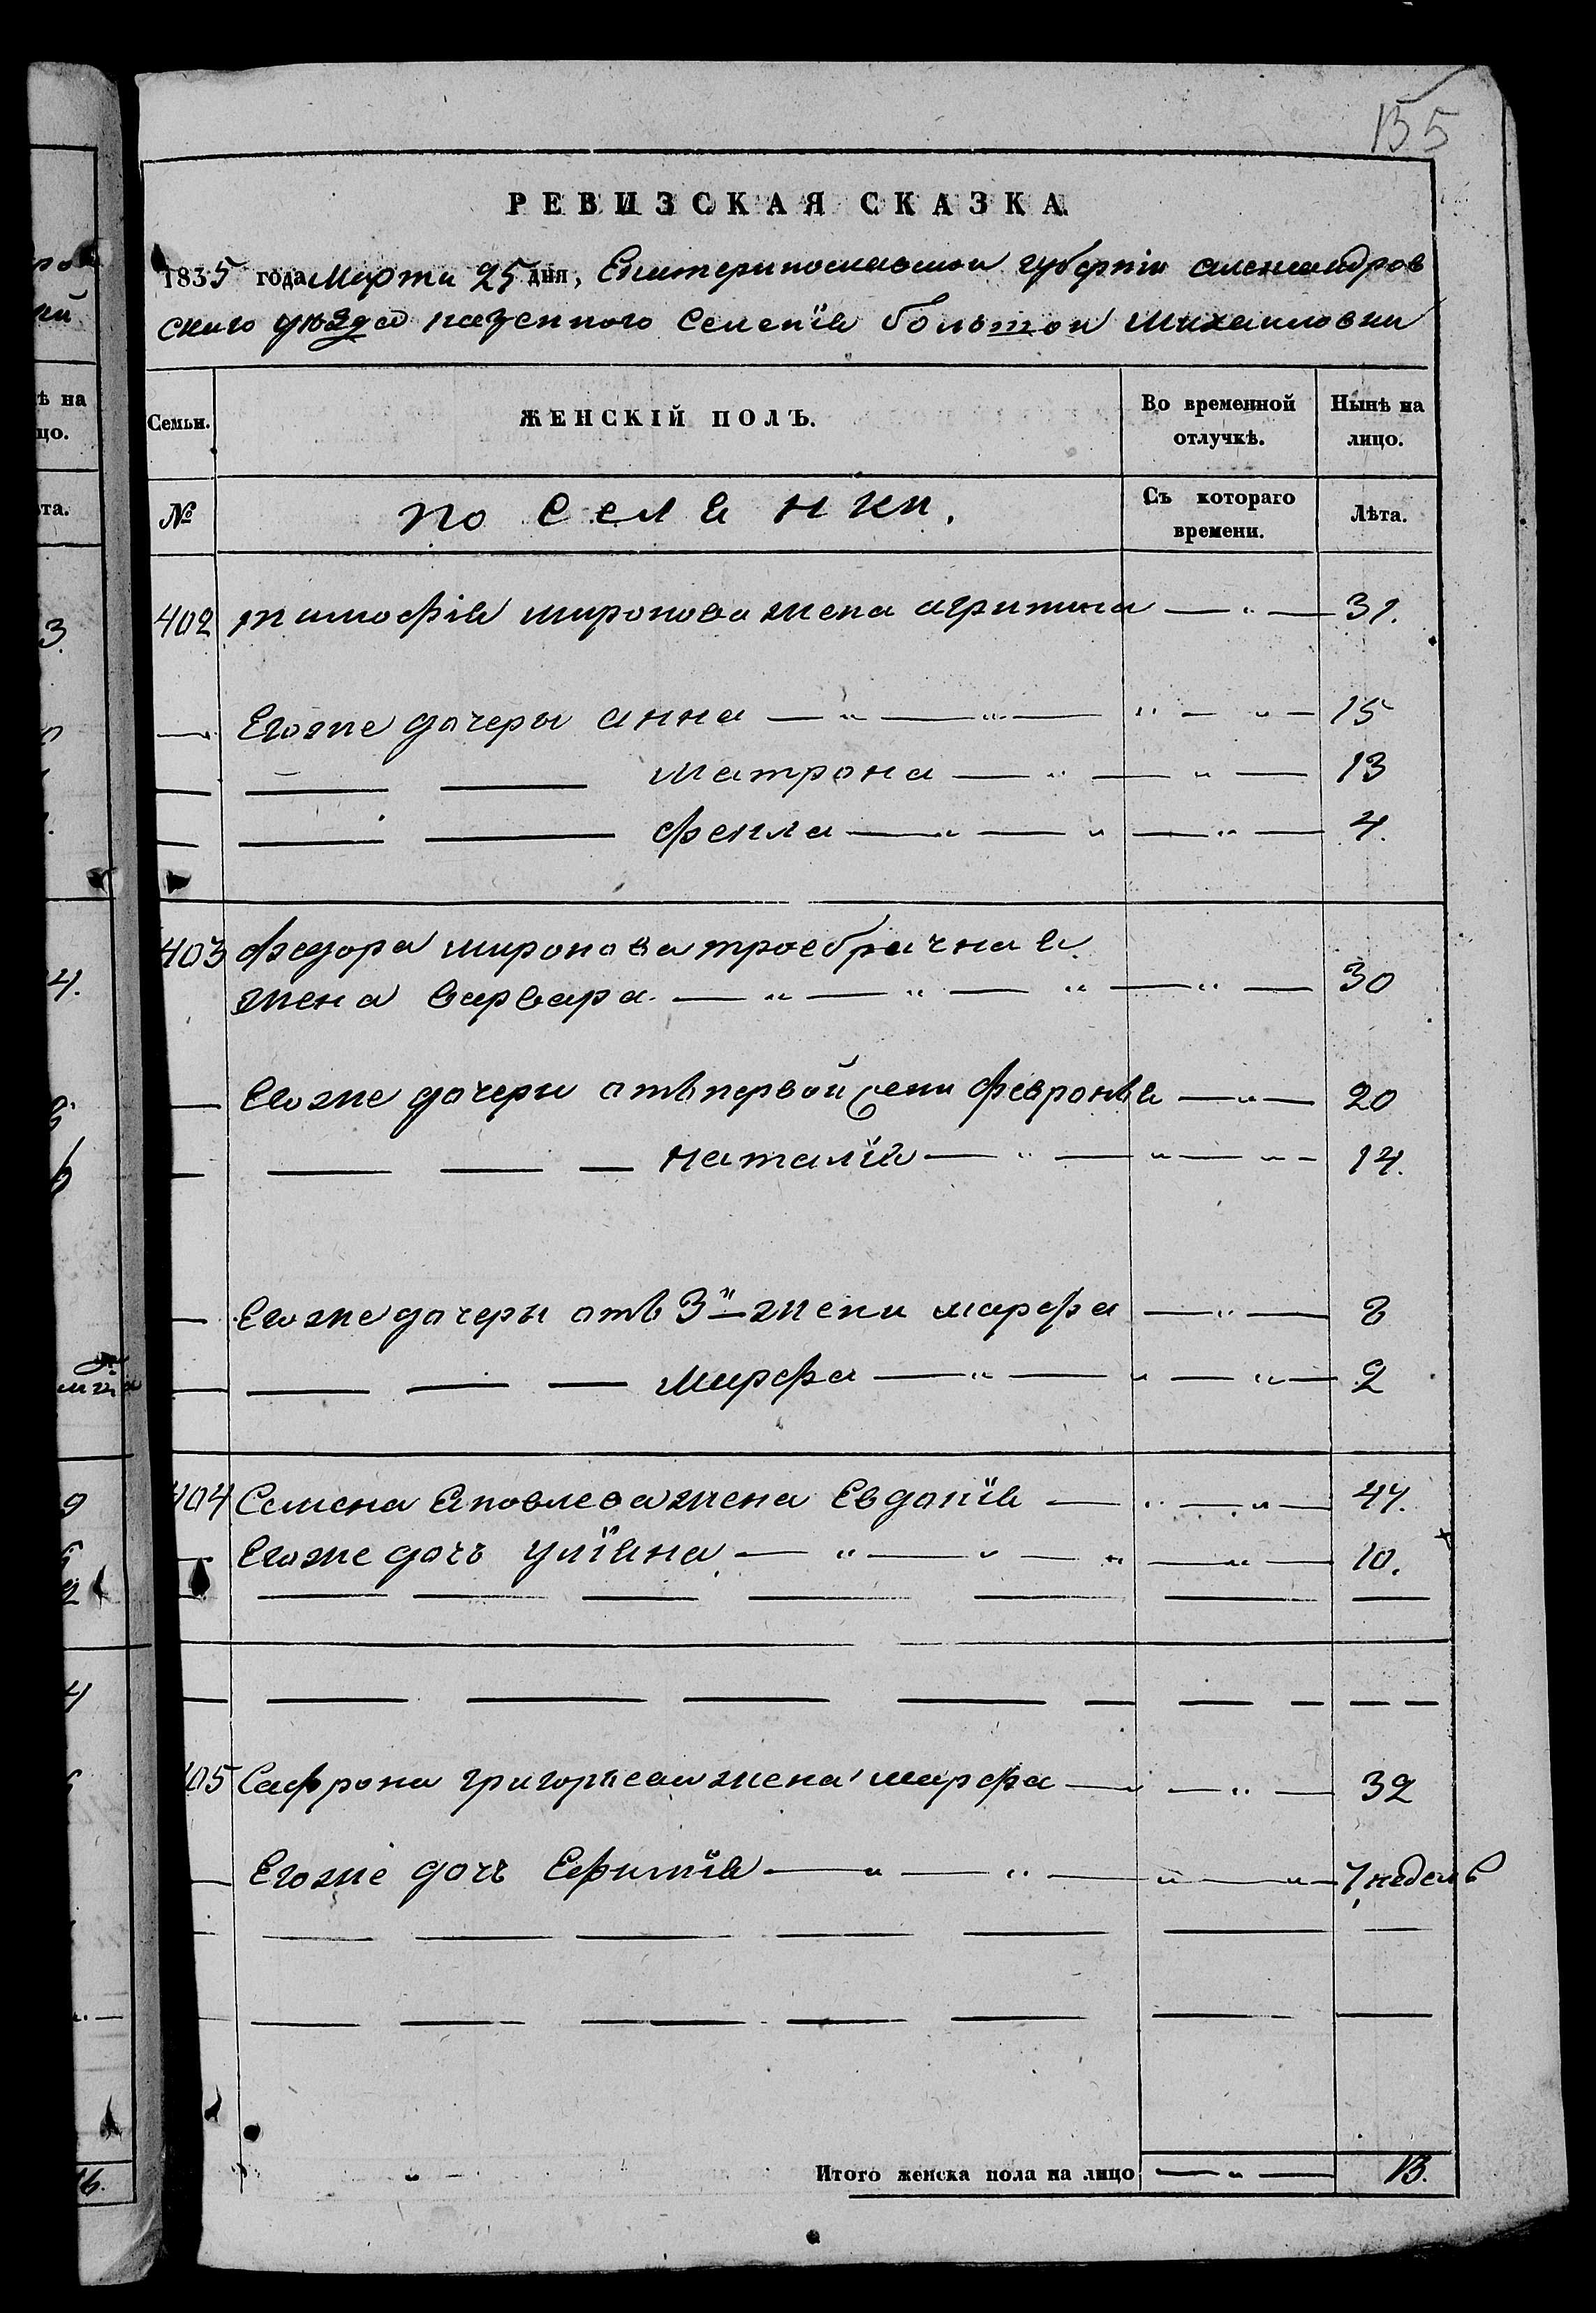 155
РЕВИЗСКАЯ СКАЗКА.
1835 года Марта 25 дня, Екатеринославской губерніи александров
скаго уѣзда казенного Селенія большой михаиловки
Семьи. ЖЕНСКІЙ ПОЛЪ. Во временной отлучкѣ. Нынѣ на лицо.
№ поселянки. Съ котораго времени. Лѣта.
402 тимофѣя миронова жена агрипина — " — 31.
— Егоже дочеры анна — " — " — " — " — 15
— — — матрона — " — " — 13
— — — фекла — " — " — " — 4.
403 федора миронова троебрачная
жена варвара — " — " — " — " — 30
— Егоже дочери отъ первой жени февронья — " — 20
— — — — наталія — " — " — " — 14.
— Егоже дочеры отъ 3й жени марфа — " — 8
— — — — марфа — " — " — " — 2
404 Семена Яковлева жена Евдокія — " — " — 44.
— Егоже дочъ уліяна — " — " — " — " — 10.
405 Сафрона григорьева жена марфа — " — " — 32
— Егоже дочъ Ефимія — " — " — " — " — 7 недель
Итого женска пола на лицо — " — 13.
ѣ на
цо.
та.